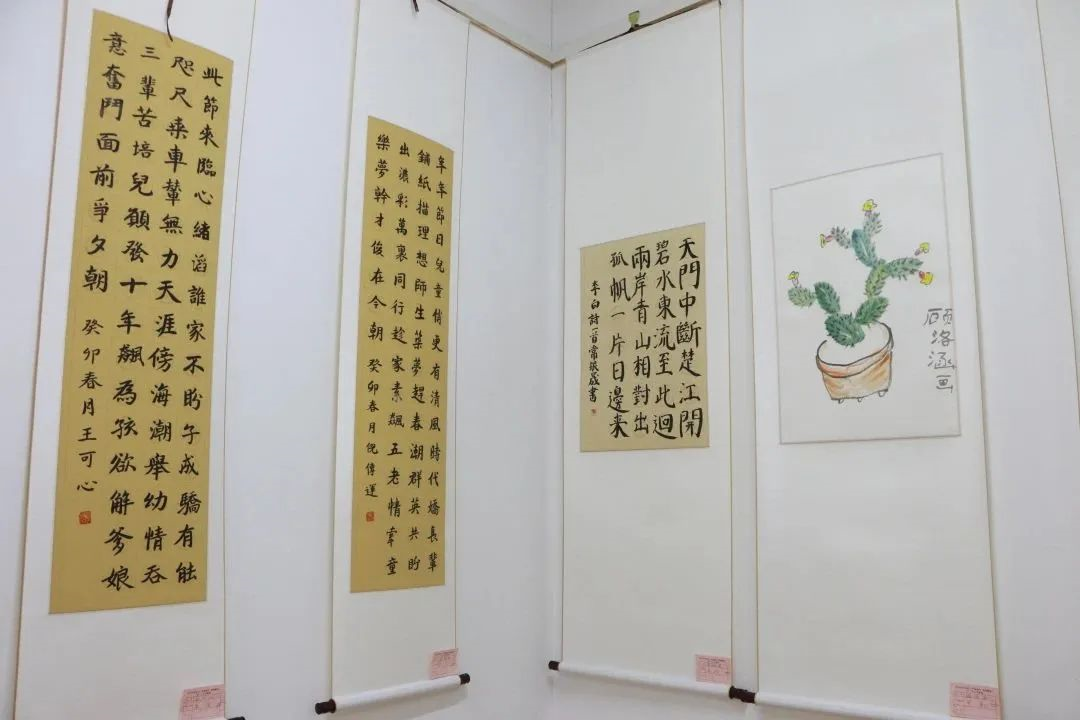 此節來臨心緒滔誰家不盼子成驕有能
咫尺乘車輦無力天涯傍海潮舉幼情吞
三輩苦培兒願發十年飆為孩欲解爹娘
意奮鬥面前爭夕朝 癸卯春月王可心
年年節日兒童俏更有清風時代嬌長輩
鋪紙描理想師生築夢趕春潮群英共貯
出濃彩萬裏同行趁素飆五老情牽童
樂夢幹才俊在今朝 癸卯春月倪傳運
天門中斷楚江開
碧水東流至此迴
兩岸青山相對出
孤帆一片日邊来
李白詩一首常晟書
顾洛涵画